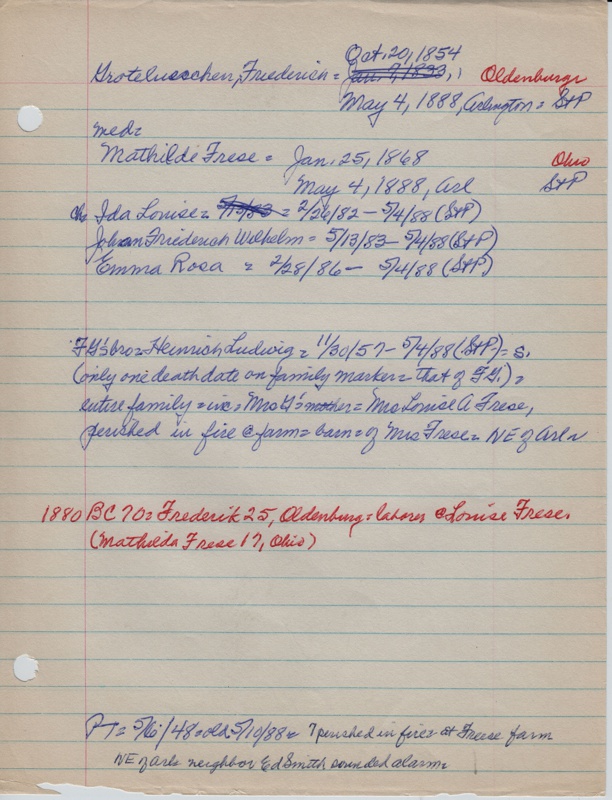 Oct. 20, 1854
Grotelusschen, Friederich = Jan. 7, 1833, Oldenburg
May 4, 1888, Arlington = StP
med=
Mathilde Frese = Jan. 25, 1868 Ohio
May 4, 1888, Arl StP
ch= Ida Louise = 5/13/83 = 2/26/82 - 5/4/88 (StP)
Johan Friederich Wilhelm = 5/13/83 - 5/4/88 (StP)
Emma Rosa = 2/28/86 - 5/4/88 (StP)
FG's bro = Heinrich Ludwig = 11/30/57 - 5/4/88 (StP) = s.
(only one death date on family marker = that of FG.) =
entire family = inc = Mrs G's mother = Mrs Louise A Frese,
perished in fire @ farm = barn = of Mrs Frese = NE of Arl
1880 BC 70 = Frederik 25, Oldenburg = laborer @ Louise Frese.
(Mathilda Frese 17, Ohio)
PT = 5/6/48 = old 5/10/88 = 7 perished in fire = at Freese farm
NE of Arl = neighbor Ed Smith sounded alarm